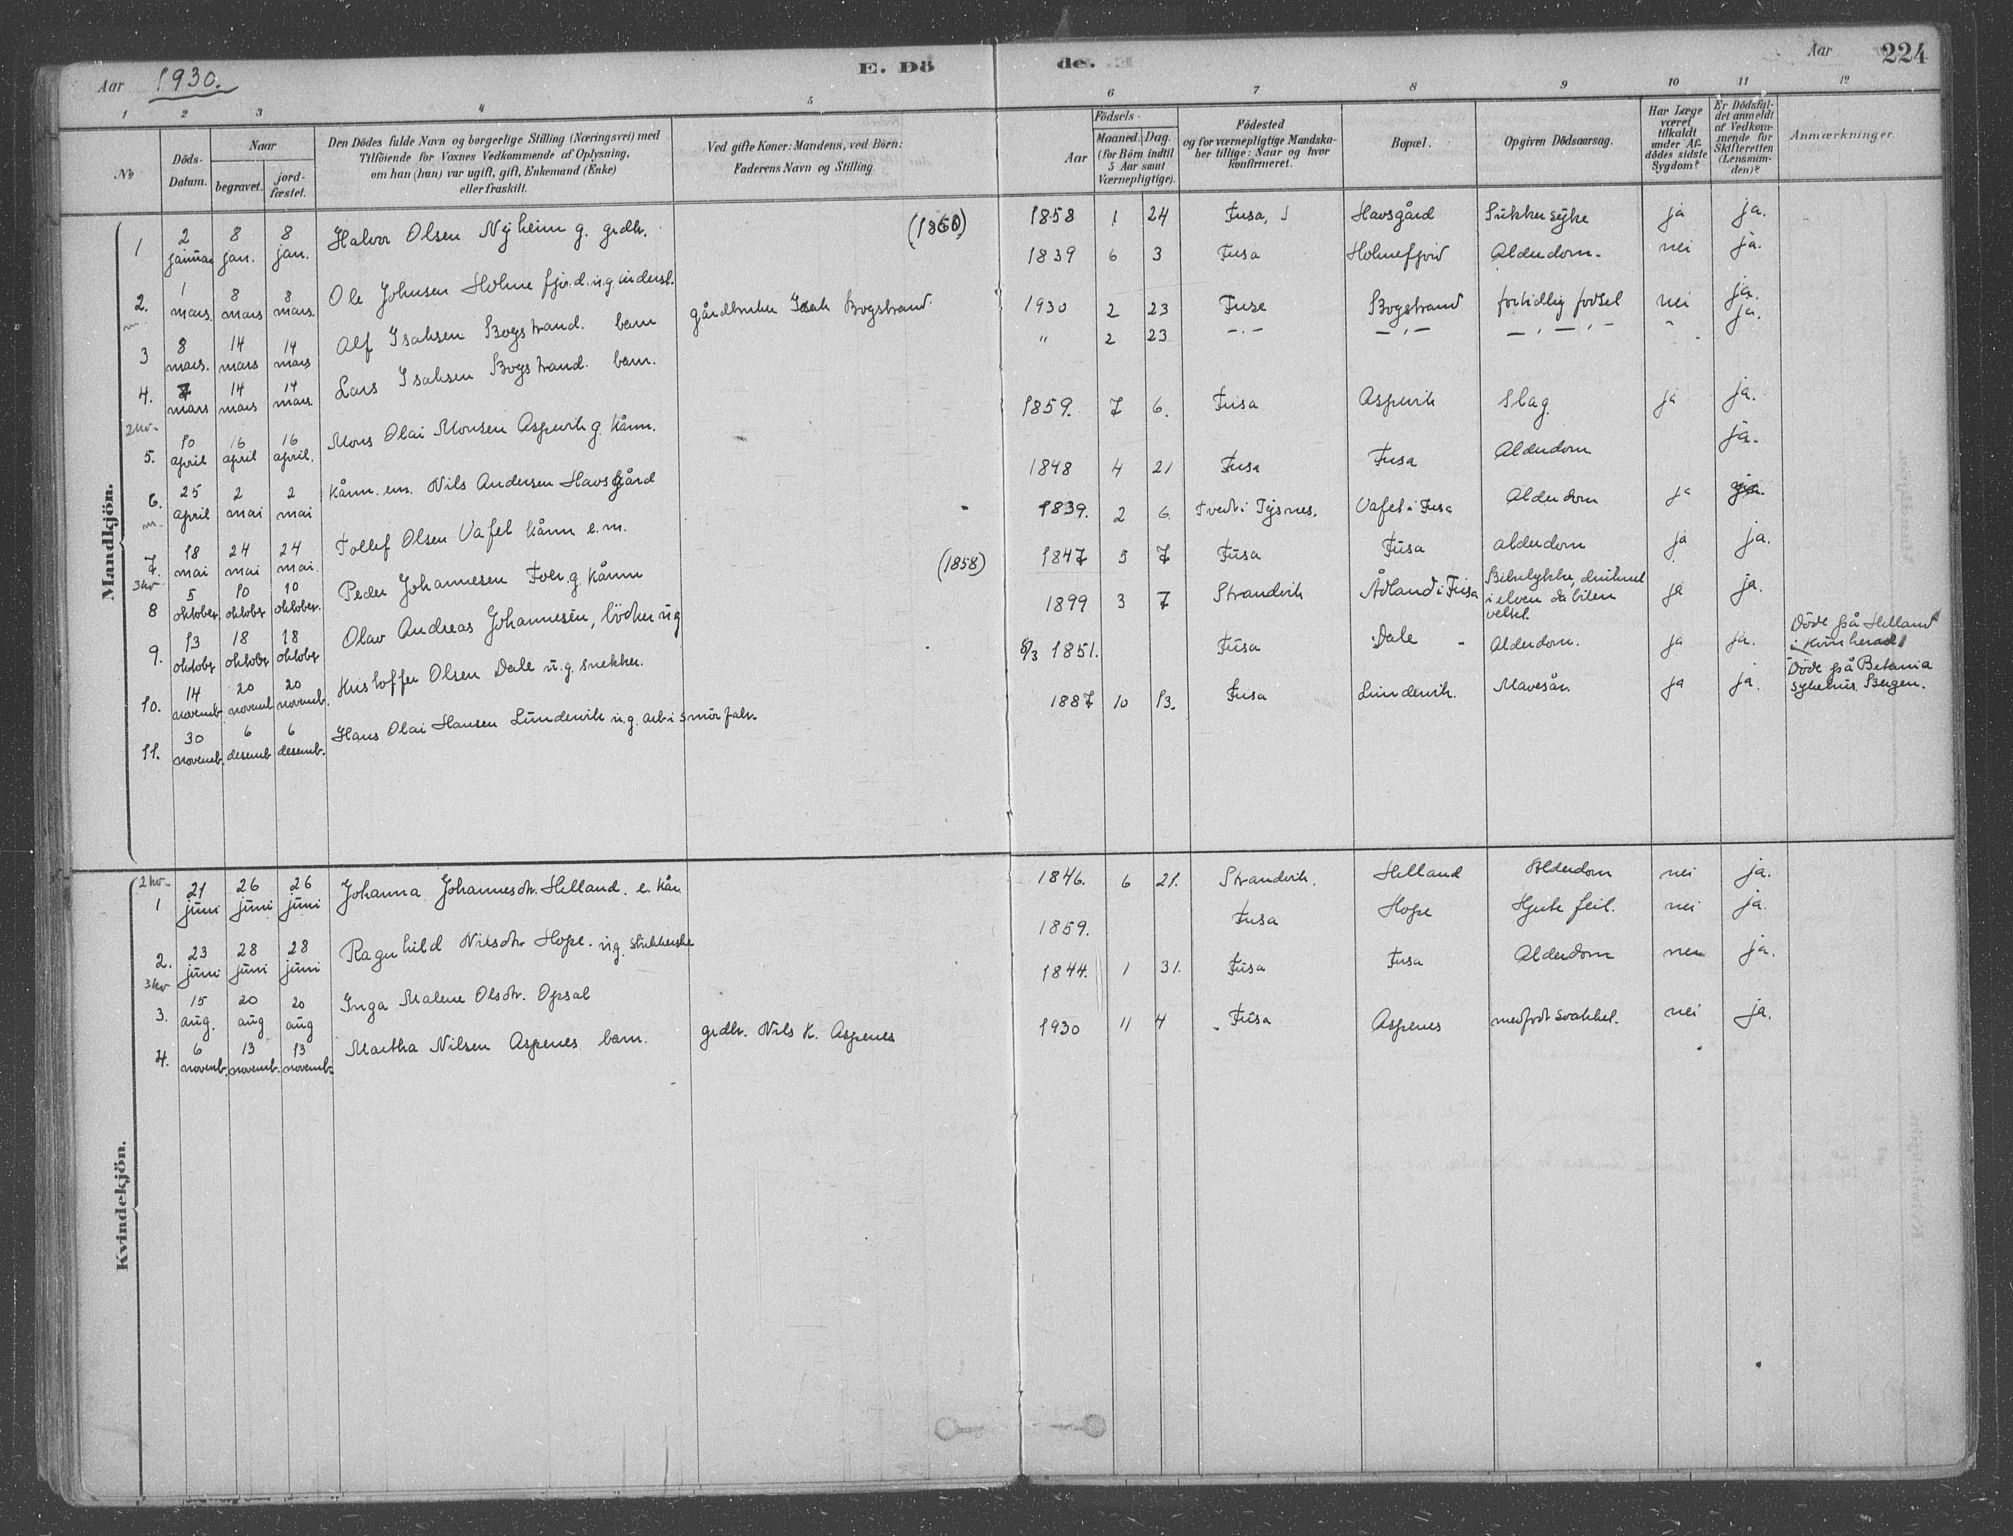 Aar 1930.
E. Dö
de.
Aar
224
1 2 3 4 5 6 7 8 9 10 11 12
No
Döds-
Datum.
Naar
begravet.
jord-
fæstet.
Den Dödes fulde Navn og borgerlige Stilling (Næringsvei) med
Tilföiende for Voxnes Vedkommende af Oplysning,
om han (hun) var ugift, gift, Enkemand (Enke)
eller fraskilt.
Ved gifte Koner: Mandens, ved Börn:
Faderens Navn og Stilling.
Födsels-
Aar
Maaned. Dag.
(for Börn indtil
5 Aar samt
Værnepligtige).
Födested
og for værnepligtige Mandska-
ber tillige: Naar og hvor
konfirmeret.
Bopæl.
Opgiven Dödsaarsag.
Har Læge
været
tilkaldt
under Af-
dödes sidste
Sygdom?
Er Dödsfal-
det anmeldt
af Vedkom-
mende for
Skifteretten
(Lensman-
den)?
Anmærkninger.
Mandkjön.
1 2 januar 8 jan. 8 jan. Halvor Olsen Nyheim g. grdbr. 1858 1 24 Fusa, Havsgård Sukkersyke ja ja.
2. 1 mars. 8 mars 8 mars. Ole Johnsen Holmefjord. u.g. inderst. 1839 6 3 Fusa Holmefjord Alderdom. nei ja.
m.
3 8 mars. 14 mars 14 mars Alf Isaksen Bogstrand. barn gårdbruker Isak Bogstrand. 1930 2 23 Fusa Bogstrand fortidlig fodsel nei ja.
4. 7 mars 14 mars 14 mars. Lars Isaksen Bogstrand. barn. " 2 23 —"— —"— —"— ja.
2kv.
5. 10 april 16 april 16 april. Mons Olai Monsen Aspevik g. kårm. 1859. 7 6. Fusa Aspevik Slag ja ja.
6. 25 april 2 mai 2 mai kårm. em. Nils Andersen Havsgård 1848 4 21 Fusa Fusa Alderdom ja.
m.
7. 18 mai 24 mai 24 mai. Tollef Olsen Vafel kårm e.m. 1839. 2 6. Tvedt i Tysnes. Vafel i Fusa Alderdom ja ja.
3kv
8 5 oktober 10 oktober 10 oktober. Peder Johannesen g. kårm (1858) 1847 5 7 Fusa Fusa alderdom ja ja.
9. 13 oktober 18 oktober 18 oktober Olav Andreas Johannesen, bödker u.g 1899 3 7 Strandvik Ådland i Fusa Bilulykke, druknet
i elven da bilen
veltet. ja ja.
10. 14 novemb 20 novemb 20 novemb. Kristoffer Olsen Dale u.g. snekker. 8/3 1851. Fusa Dale Alderdom. ja ja. Döde på Helland
i Kvinherad
11. 30 novemb. 6 desemb 6 desemb. Hans Olai Hansen Lundervik u.g. arb i smörfabr. 1887 10 13. Fusa Lundervik. Mavesår. ja ja. Döde på Betania
sykehus. Bergen.
Kvindekjön.
2kv.
1 21 juni 26 juni 26 juni Johanna Johannesdtr. Helland. e. kår. 1846. 6 21. Strandvik. Helland Alderdom nei ja.
2. 23 juni 28 juni 28 juni Ragnhild Nilsdtr. Hope. u.g. 1859. Fusa Hope Hjertefeil. nei ja.
3kv
3. 15 aug. 20 aug 20 aug Inga Malene Olsdtr. Opsal 1844. 1 31. Fusa Fusa Alderdom nei ja.
4. 6 novemb. 13 novemb. 13 novemb. Martha Nilsen Aspenes barn. grdbr. Nils K. Aspenes 1930 11 4 Fusa Aspenes medfödt svakhet. nei ja.